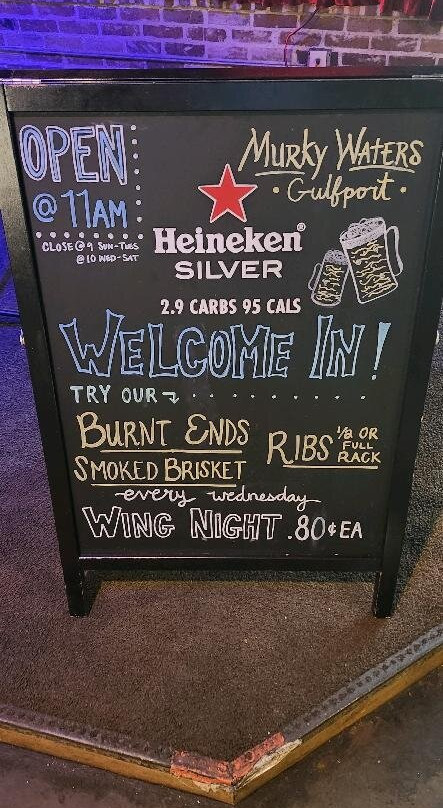 OPEN
@ 11AM
CLOSE @ 9 SUN-TUES
@ 10 WED-SAT
MURKY WATERS
• Gulfport •
Heineken®
SILVER
2.9 CARBS 95 CALS
WELCOME IN!
TRY OUR
BURNT ENDS
SMOKED BRISKET
RIBS 1/2 OR
FULL
RACK
every wednesday
WING NIGHT .80¢ EA